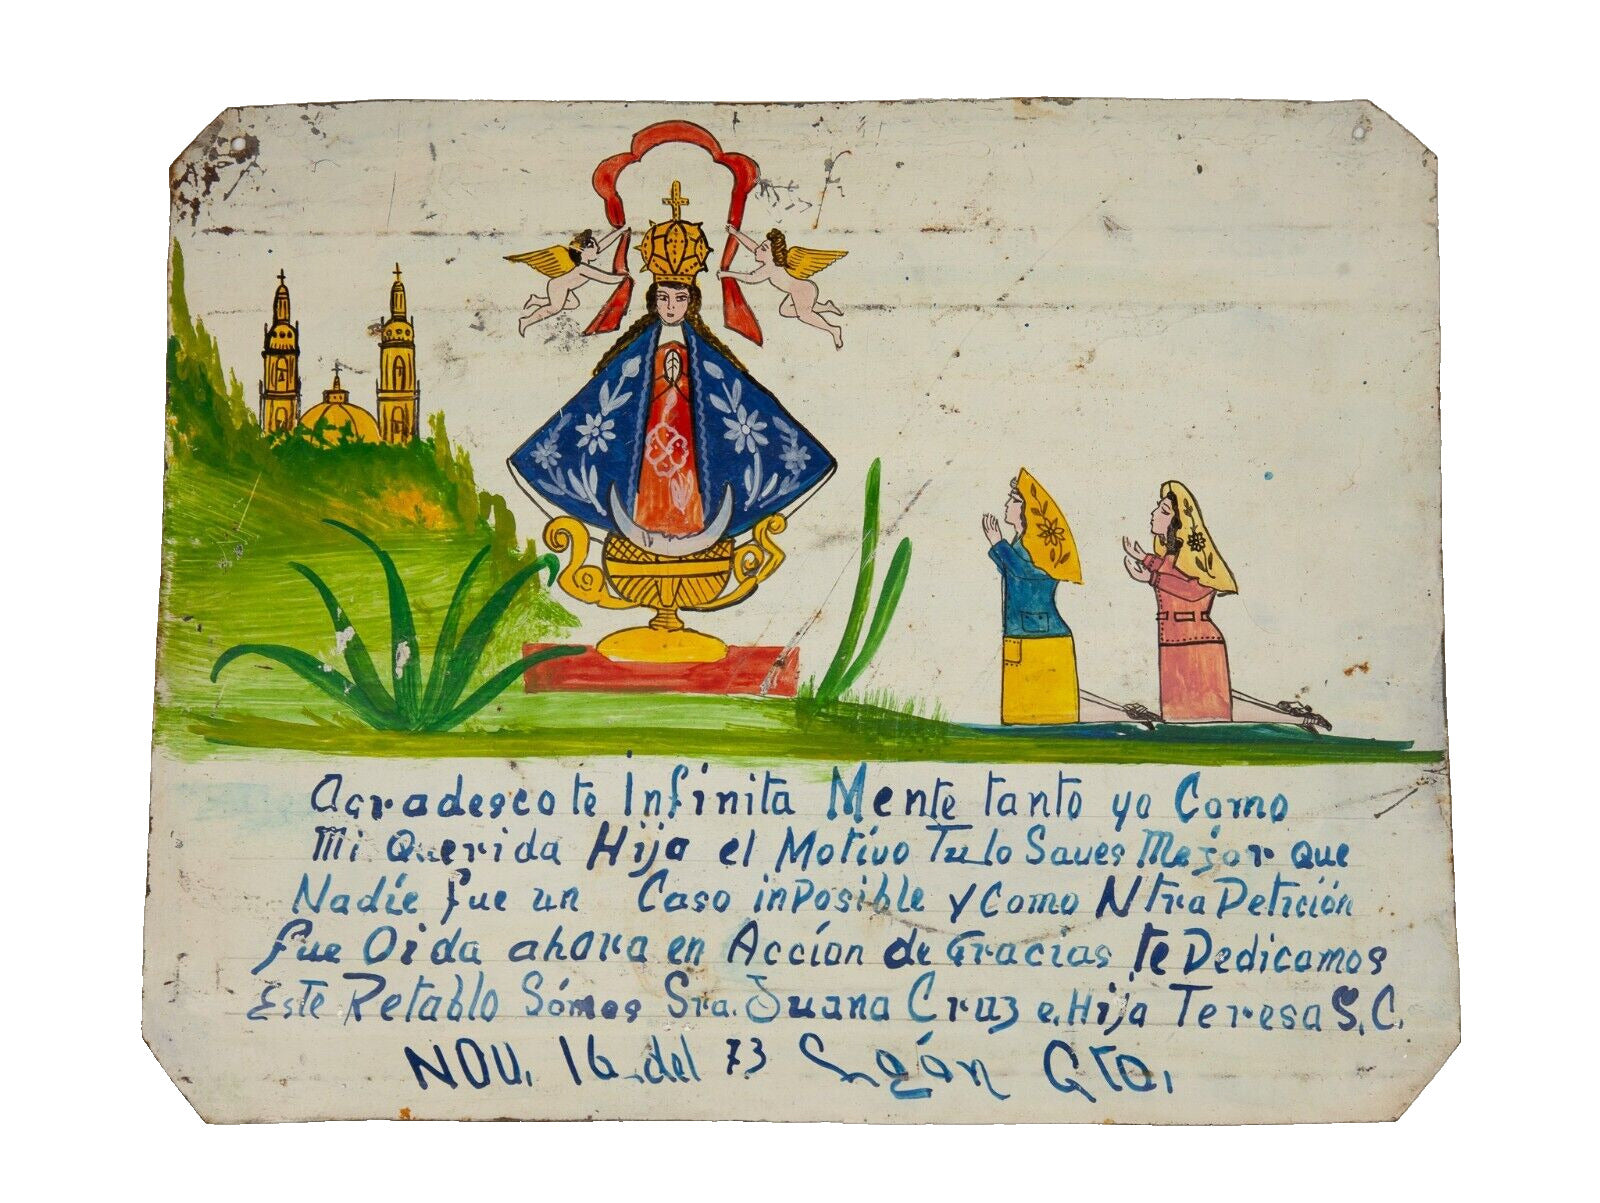 Agradescote Infinita Mente tanto yo Como
Mi Querida Hija el Motivo Tu lo Saves Mejor que
Nadie fue un Caso inPosible y Como Ntra Petición
fue Oida ahora en Accíon de Gracias te Dedicamos
Este Retablo Sómos Sra. Juana Cruz e Hija Teresa S. C.
NOV. 16 del 73 León Gto.